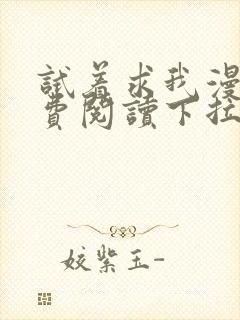 試着求我漫
費閱讀下拉
姣紫玉-